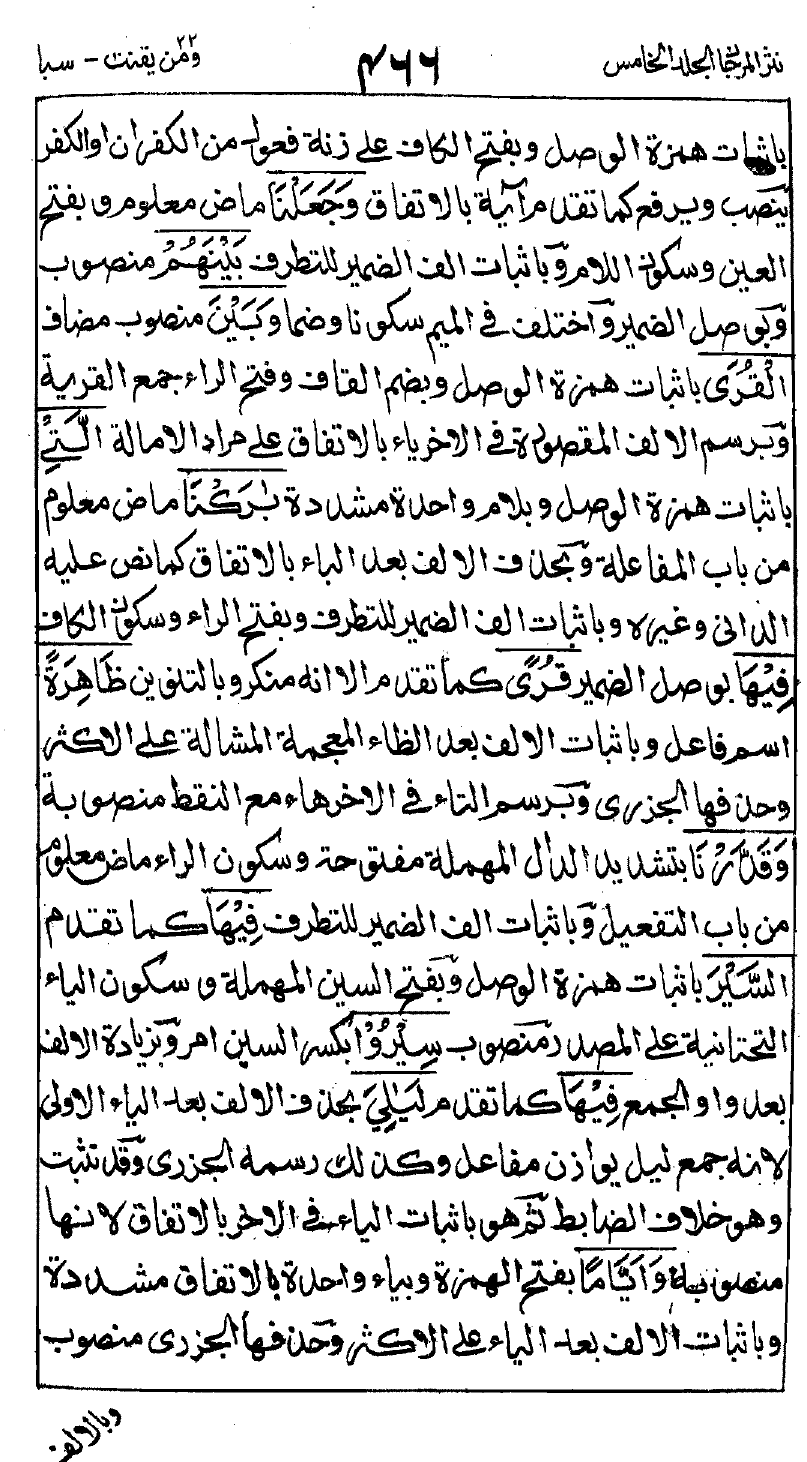 نثر المرجان المجلد الخامس
٤٦٦
ومن يقنت ٢٢ – سبا
باثبات همزة الوصل وبفتح الكاف على زنة فعول من الكفران او الكفر
ينصب ويرفع كما تقدم مرآية بالاتفاق وَجَعَلْنَا ماض معلوم وبفتح
العين وسكون اللام وباثبات الف الضمير للتطرف بَيْنَهُمْ منصوب
وبوصل الضمير واختلف في الميم سكونا وضما وَبَيْنَ منصوب مضاف
الْقُرَى باثبات همزة الوصل وبضم القاف وفتح الراء جمع القرية
وبرسم الالف المقصورة في الاخر ياء بالاتفاق على مراد الامالة الَّتِيْ
باثبات همزة الوصل وبلام واحدة مشددة بٰرَكْنَا ماض معلوم
من باب المفاعلة وبحذف الالف بعد الباء بالاتفاق كما نص عليه
الداني وغيره وباثبات الف الضمير للتطرف وبفتح الراء وسكون الكاف
فِيْهَا بوصل الضمير قُرًى كما تقدم الا انه منكر وبالتنوين ظَاهِرَةً
اسم فاعل وباثبات الالف بعد الظاء المعجمة المشالة على الاكثر
وحذفها الجزري وبرسم التاء في الاخر هاء مع النقط منصوبة
وَقَدَّرْنَا بتشديد الدال المهملة مفتوحة وسكون الراء ماض معلوم
من باب التفعيل وباثبات الف الضمير للتطرف فِيْهَا كما تقدم
السَّيْرَ باثبات همزة الوصل وبفتح السين المهملة وسكون الياء
التحتانية على المصدر منصوب سِيْرُوْا بكسر السين امر وبزيادة الالف
بعد واو الجمع فِيْهَا كما تقدم لَيَالِيَ بحذف الالف بعد الياء الاولى
لانه جمع ليل يوازن مفاعل وكذلك رسمه الجزري وقد تثبت
وهو خلاف الضابط ثم هو باثبات الياء في الاخر بالاتفاق لانها
منصوبة وَاَيَّامًا بفتح الهمزة وبياء واحدة بالاتفاق مشددة
وباثبات الالف بعد الياء على الاكثر وحذفها الجزري منصوب
وبالالف